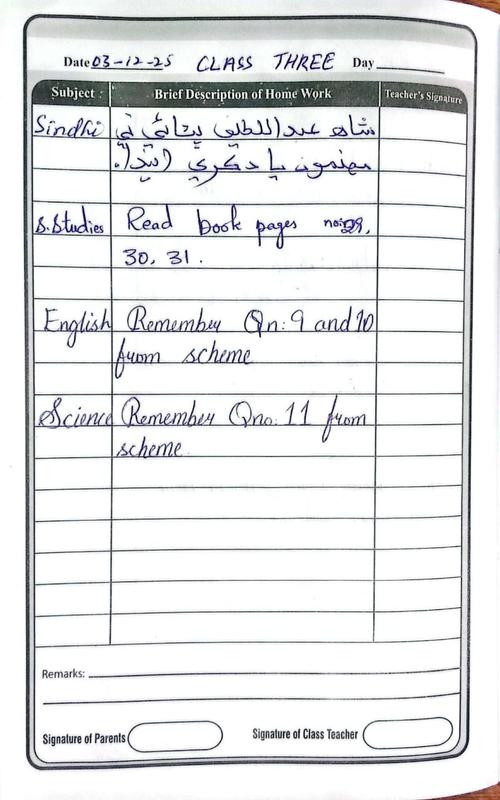 Date 03-12-25 CLASS THREE Day
Subject : Brief Description of Home Work Teacher's Signature
Sindhi شاهه عبداللطيف ڀٽائي تي
مضمون ياد ڪري
S.Studies Read book pages no:29,
30, 31.
English Remember Qn: 9 and 10
from scheme
Science Remember Qno: 11 from
scheme
Remarks:
Signature of Parents Signature of Class Teacher